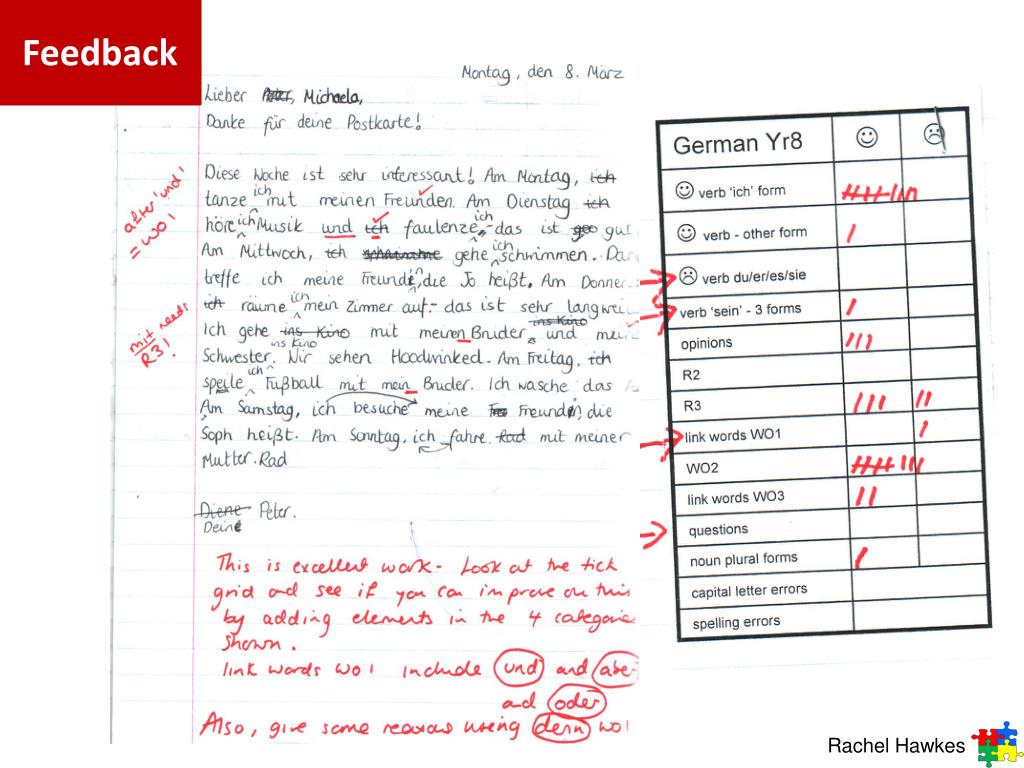 Feedback
Montag, den 8. März
Lieber Michaela,
Danke für deine Postkarte!
Diese Woche ist sehr interessant! Am Montag, ich
tanze ich mit meinen Freunden. Am Dienstag ich
höre ich Musik und ich faulenze ich - das ist gut
Am Mittwoch, ich gehe ich schwimmen.
treffe ich meine Freundin, die Jo heißt. Am Donner
ich räume ich mein Zimmer auf - das ist sehr langwei
Ich gehe ins Kino mit meinen Bruder ins Kino und
ins Kino
Schwester. Wir sehen Hoodwinked. Am Freitag, ich
speile ich Fußball mit mein Bruder. Ich wasche das
Am Samstag, ich besuche meine Freundin, die
Soph heißt. Am Sonntag, ich fahre Rad mit meiner
Mutter. Rad
Diene Peter.
Deine
after 'und'
= WO1
mit needs
R3!
This is excellent work - Look at the tick
grid and see if you can improve on this
by adding elements in the 4 categorie
shown.
link words WO1 include und and abe
and oder
Also, give some reasons using denn WO1
German Yr8 ☺ ☹
☺ verb 'ich' form
☺ verb - other form
☹ verb du/er/es/sie
verb 'sein' - 3 forms
opinions
R2
R3
link words WO1
WO2
link words WO3
questions
noun plural forms
capital letter errors
spelling errors
Rachel Hawkes